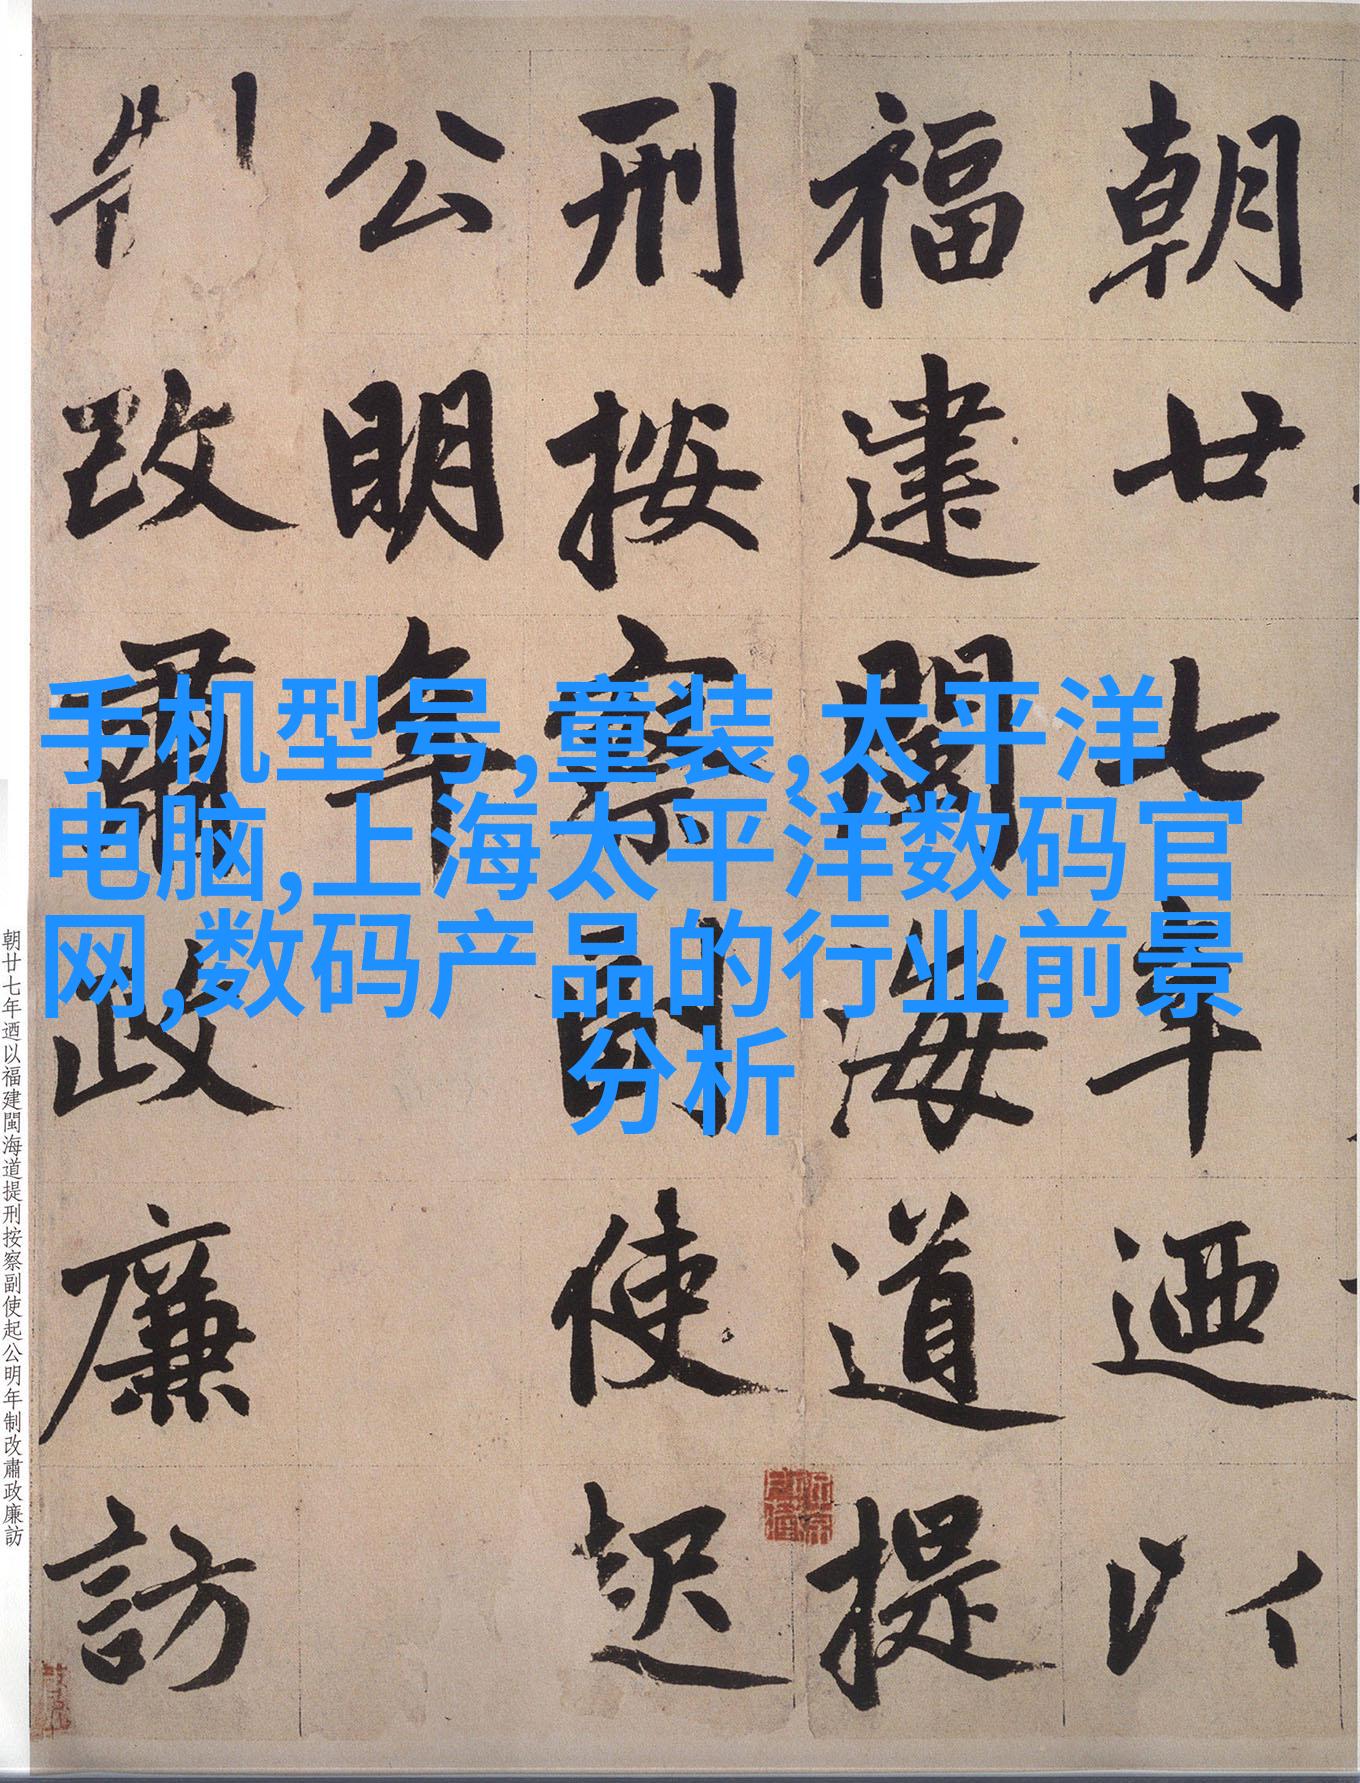 朝廿七年迺以
福建閩海道提
刑按察副使起
公明年
制改肅政廉訪
手机型号,童装,太平洋
电脑,上海太平洋数码官
网,数码产品的行业前景
分析
朝廿七年迺以福建閩海道提刑按察副使起公明年制改肅政廉訪